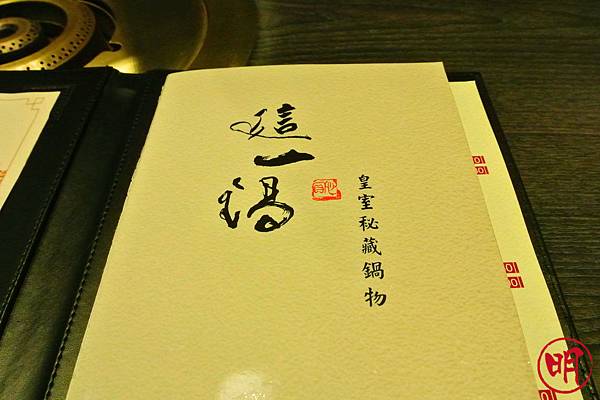 這一鍋
皇室秘藏鍋物
明